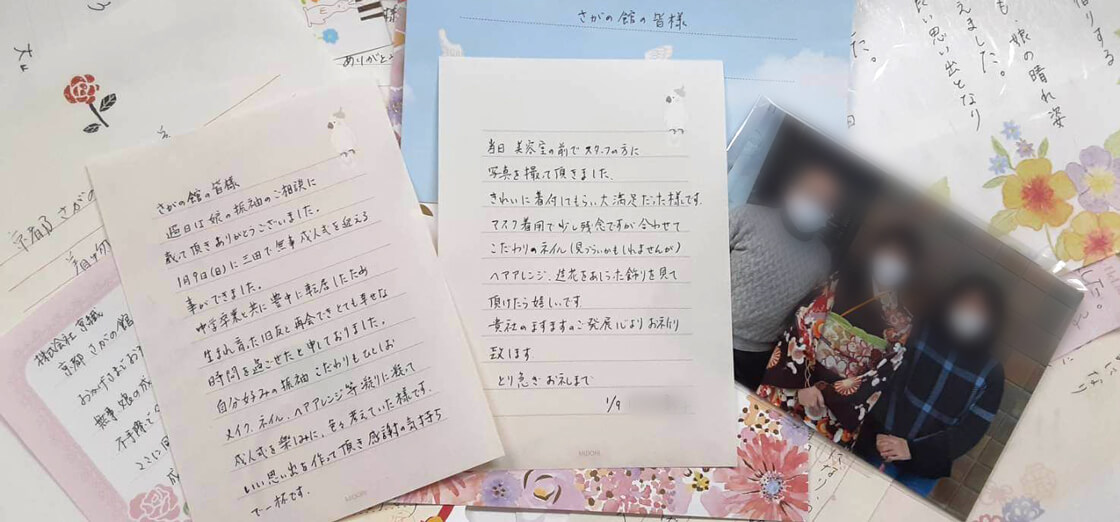 さがの館の皆様
過日は娘の振袖のご相談に
載って頂きありがとうございました。
1月9日(日)に三田で無事成人式を迎える
事ができました。
中学卒業と共に豊中に転居したため
生まれ育った旧友と再会でき とても幸せな
時間を過ごせたと申しておりました。
自分好みの振袖 こだわりもなしお
メイク、ネイル、ヘアアレンジ等凝りに凝って
成人式を楽しみに、色々考えていた様です。
いい思い出を作って頂き感謝の気持ち
で一杯です。
MIDORI
当日 美容室の前でスタッフの方に
写真を撮って頂きました。
きれいに着付してもらい大満足だった様です。
マスク着用で少し残念ですが合わせて
こだわりのネイル(見づらいかもしれませんが)
ヘアアレンジ、造花をあしらった飾りを見て
頂けたら嬉しいです。
貴社のますますのご発展心よりお祈り
致します
とり急ぎお礼まで
1/9
MIDORI
さがの館の皆様
ありがとう
株式会社 京織
京都 さがの館
おかげさまで
無事 娘の成
京都 さがの
も、娘の晴れ姿
えました。
良い思い出となり
た。